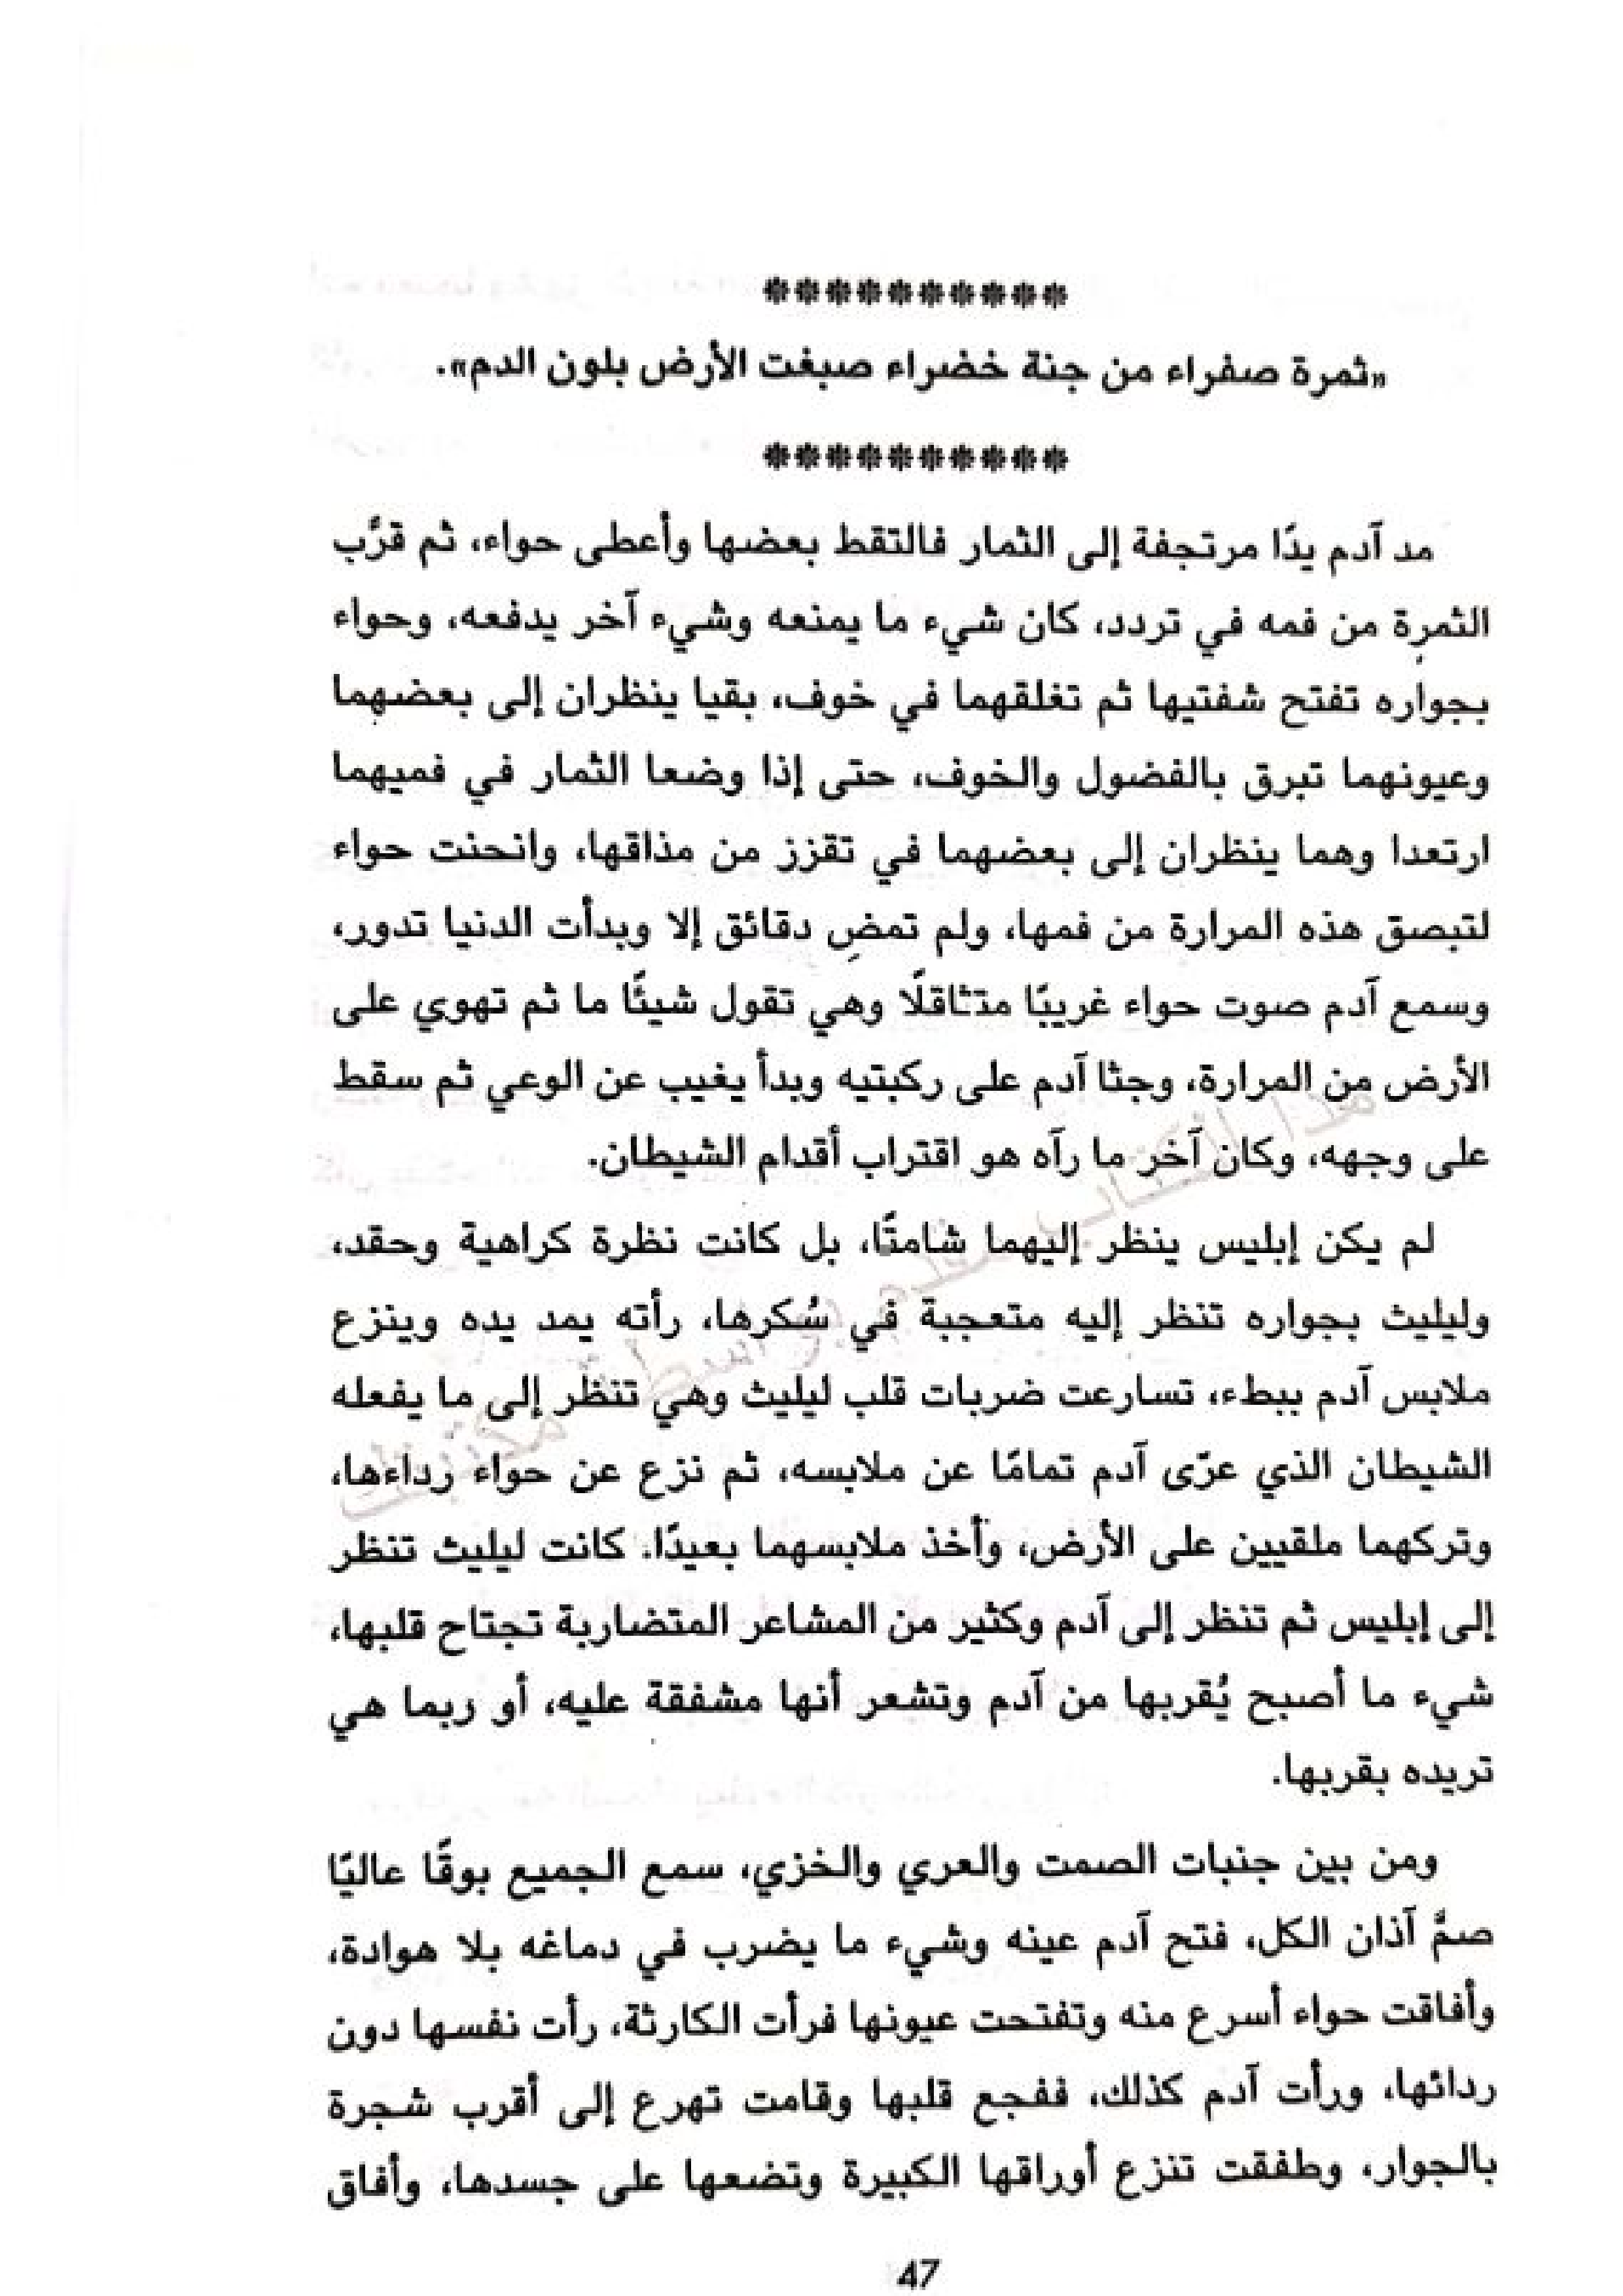 **********
«ثمرة صفراء من جنة خضراء صبغت الأرض بلون الدم».
**********
مد آدم يدًا مرتجفة إلى الثمار فالتقط بعضها وأعطى حواء، ثم قرَّب
الثمرة من فمه في تردد، كان شيء ما يمنعه وشيء آخر يدفعه، وحواء
بجواره تفتح شفتيها ثم تغلقهما في خوف، بقيا ينظران إلى بعضهما
وعيونهما تبرق بالفضول والخوف، حتى إذا وضعا الثمار في فميهما
ارتعدا وهما ينظران إلى بعضهما في تقزز من مذاقها، وانحنت حواء
لتبصق هذه المرارة من فمها، ولم تمضِ دقائق إلا وبدأت الدنيا تدور،
وسمع آدم صوت حواء غريبًا متثاقلًا وهي تقول شيئًا ما ثم تهوي على
الأرض من المرارة، وجثا آدم على ركبتيه وبدأ يغيب عن الوعي ثم سقط
على وجهه، وكان آخر ما رآه هو اقتراب أقدام الشيطان.
لم يكن إبليس ينظر إليهما شامتًا، بل كانت نظرة كراهية وحقد،
وليليث بجواره تنظر إليه متعجبة في سُكرها، رأته يمد يده وينزع
ملابس آدم ببطء، تسارعت ضربات قلب ليليث وهي تنظر إلى ما يفعله
الشيطان الذي عرّى آدم تمامًا عن ملابسه، ثم نزع عن حواء رداءها،
وتركهما ملقيين على الأرض، وأخذ ملابسهما بعيدًا. كانت ليليث تنظر
إلى إبليس ثم تنظر إلى آدم وكثير من المشاعر المتضاربة تجتاح قلبها،
شيء ما أصبح يُقربها من آدم وتشعر أنها مشفقة عليه، أو ربما هي
تريده بقربها.
ومن بين جنبات الصمت والعري والخزي، سمع الجميع بوقًا عاليًا
صمَّ آذان الكل، فتح آدم عينه وشيء ما يضرب في دماغه بلا هوادة،
وأفاقت حواء أسرع منه وتفتحت عيونها فرأت الكارثة، رأت نفسها دون
ردائها، ورأت آدم كذلك، ففجع قلبها وقامت تهرع إلى أقرب شجرة
بالجوار، وطفقت تنزع أوراقها الكبيرة وتضعها على جسدها، وأفاق
47
هذا الكتاب مقدم بواسطة مكتبتك